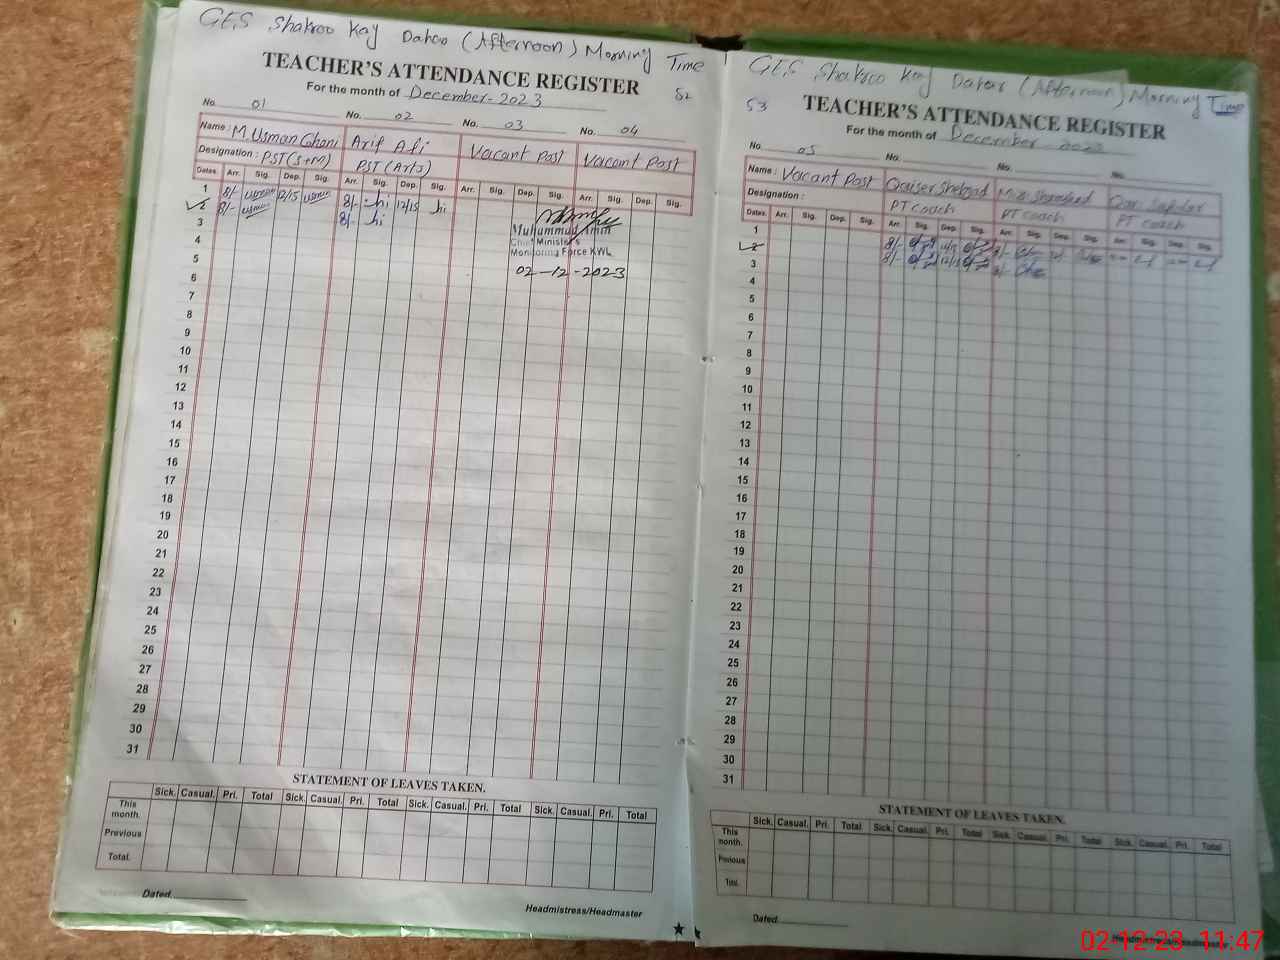 GES Shakroo Kay Dahoo (Afternoon) Morning Time
TEACHER'S ATTENDANCE REGISTER
For the month of December-2023
52
No. 01 No. 02 No. 03 No. 04
Name: M.Usman Ghani Arif Ali Vacant Post Vacant Post
Designation: PST(S+M) PST (Arts)
Dates Arr. Sig. Dep. Sig. Arr. Sig. Dep. Sig. Arr. Sig. Dep. Sig. Arr. Sig. Dep. Sig.
1 8/- usman 12/15 usman 8/- hi 12/15 hi
2 8/- usman 8/- hi
3
Muhummad Amin
4
Chief Minister's
Monitoring Force KWL
5
02-12-2023
6
7
8
9
10
11
12
13
14
15
16
17
18
19
20
21
22
23
24
25
26
27
28
29
30
31
STATEMENT OF LEAVES TAKEN.
Sick. Casual. Pri. Total Sick. Casual. Pri. Total Sick. Casual. Pri. Total Sick. Casual. Pri. Total
This month.
Previous
Total.
Dated.
Headmistress/Headmaster
GES Shakroo Kay Dahar (Afternoon) Morning Time
53
TEACHER'S ATTENDANCE REGISTER
For the month of December 2023
No. 05 No. No. No.
Name: Vacant Post Qaiser Shehzad
Designation: PT coach PT coach PT coach
Dates. Arr. Sig. Dep. Sig. Arr. Sig. Dep. Sig. Arr. Sig. Dep. Sig. Arr. Sig. Dep. Sig.
1 8/-
2 8/- 12/15
3
4
5
6
7
8
9
10
11
12
13
14
15
16
17
18
19
20
21
22
23
24
25
26
27
28
29
30
31
STATEMENT OF LEAVES TAKEN.
Sick. Casual. Pri. Total Sick. Casual. Pri. Total Sick. Casual. Pri. Total Sick. Casual. Pri. Total
This month.
Previous
Total.
Dated.
Headmistress/Headmaster
02-12-23 11:47